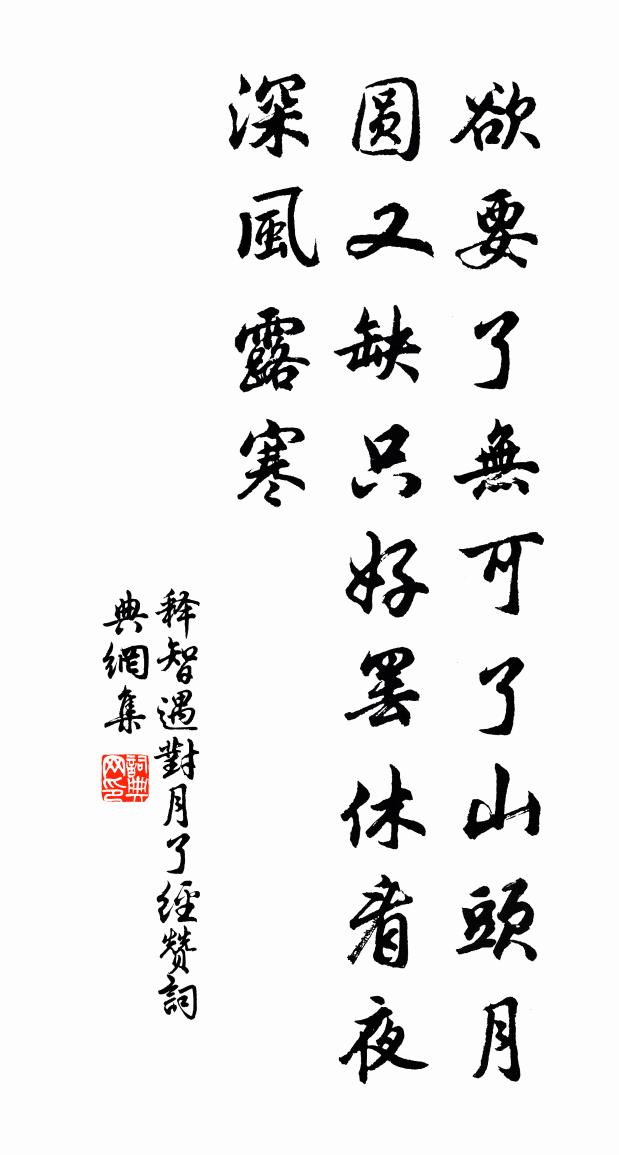 欲要了無可了山頭月
圓又缺只好罢休看夜
深風露寒
释智遇對月了經赞詞
典網集
詞典网印